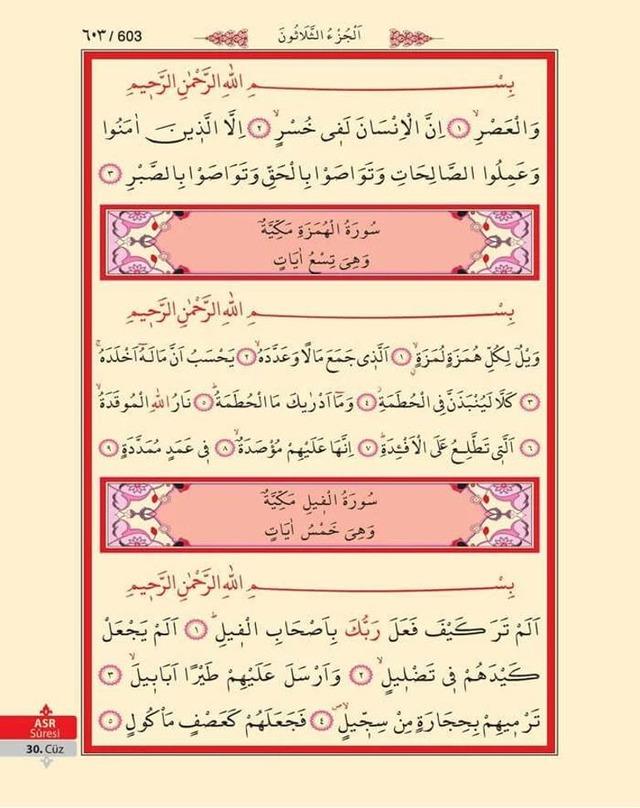 ٦٠٣ / 603
اَلْجُزْءُ الثَّلَاثُونَ
بِسْمِ اللّٰهِ الرَّحْمٰنِ الرَّحٖيمِ
وَالْعَصْرِۙ ﴿١﴾ اِنَّ الْاِنْسَانَ لَفٖى خُسْرٍۙ ﴿٢﴾ اِلَّا الَّذٖينَ اٰمَنُوا
وَعَمِلُوا الصَّالِحَاتِ وَتَوَاصَوْا بِالْحَقِّ وَتَوَاصَوْا بِالصَّبْرِ ﴿٣﴾
سُورَةُ الْهُمَزَةِ مَكِّيَّةٌ
وَهِىَ تِسْعُ اٰيَاتٍ
بِسْمِ اللّٰهِ الرَّحْمٰنِ الرَّحٖيمِ
وَيْلٌ لِكُلِّ هُمَزَةٍ لُمَزَةٍۙ ﴿١﴾ اَلَّذٖى جَمَعَ مَالًا وَعَدَّدَهُۙ ﴿٢﴾ يَحْسَبُ اَنَّ مَالَهُٓ اَخْلَدَهُۚ
﴿٣﴾ كَلَّا لَيُنْبَذَنَّ فِى الْحُطَمَةِۘ ﴿٤﴾ وَمَٓا اَدْرٰيكَ مَا الْحُطَمَةُۜ ﴿٥﴾ نَارُ اللّٰهِ الْمُوقَدَةُۙ
﴿٦﴾ اَلَّتٖى تَطَّلِعُ عَلَى الْاَفْـِٔدَةِۜ ﴿٧﴾ اِنَّهَا عَلَيْهِمْ مُؤْصَدَةٌۙ ﴿٨﴾ فٖى عَمَدٍ مُمَدَّدَةٍ ﴿٩﴾
سُورَةُ الْفٖيلِ مَكِّيَّةٌ
وَهِىَ خَمْسُ اٰيَاتٍ
بِسْمِ اللّٰهِ الرَّحْمٰنِ الرَّحٖيمِ
اَلَمْ تَرَ كَيْفَ فَعَلَ رَبُّكَ بِاَصْحَابِ الْفٖيلِۜ ﴿١﴾ اَلَمْ يَجْعَلْ
كَيْدَهُمْ فٖى تَضْلٖيلٍۙ ﴿٢﴾ وَاَرْسَلَ عَلَيْهِمْ طَيْرًا اَبَابٖيلَۙ ﴿٣﴾
تَرْمٖيهِمْ بِحِجَارَةٍ مِنْ سِجّٖيلٍۖ ﴿٤﴾ فَجَعَلَهُمْ كَعَصْفٍ مَأْكُولٍ ﴿٥﴾
ASR
Sûresi
30. Cüz